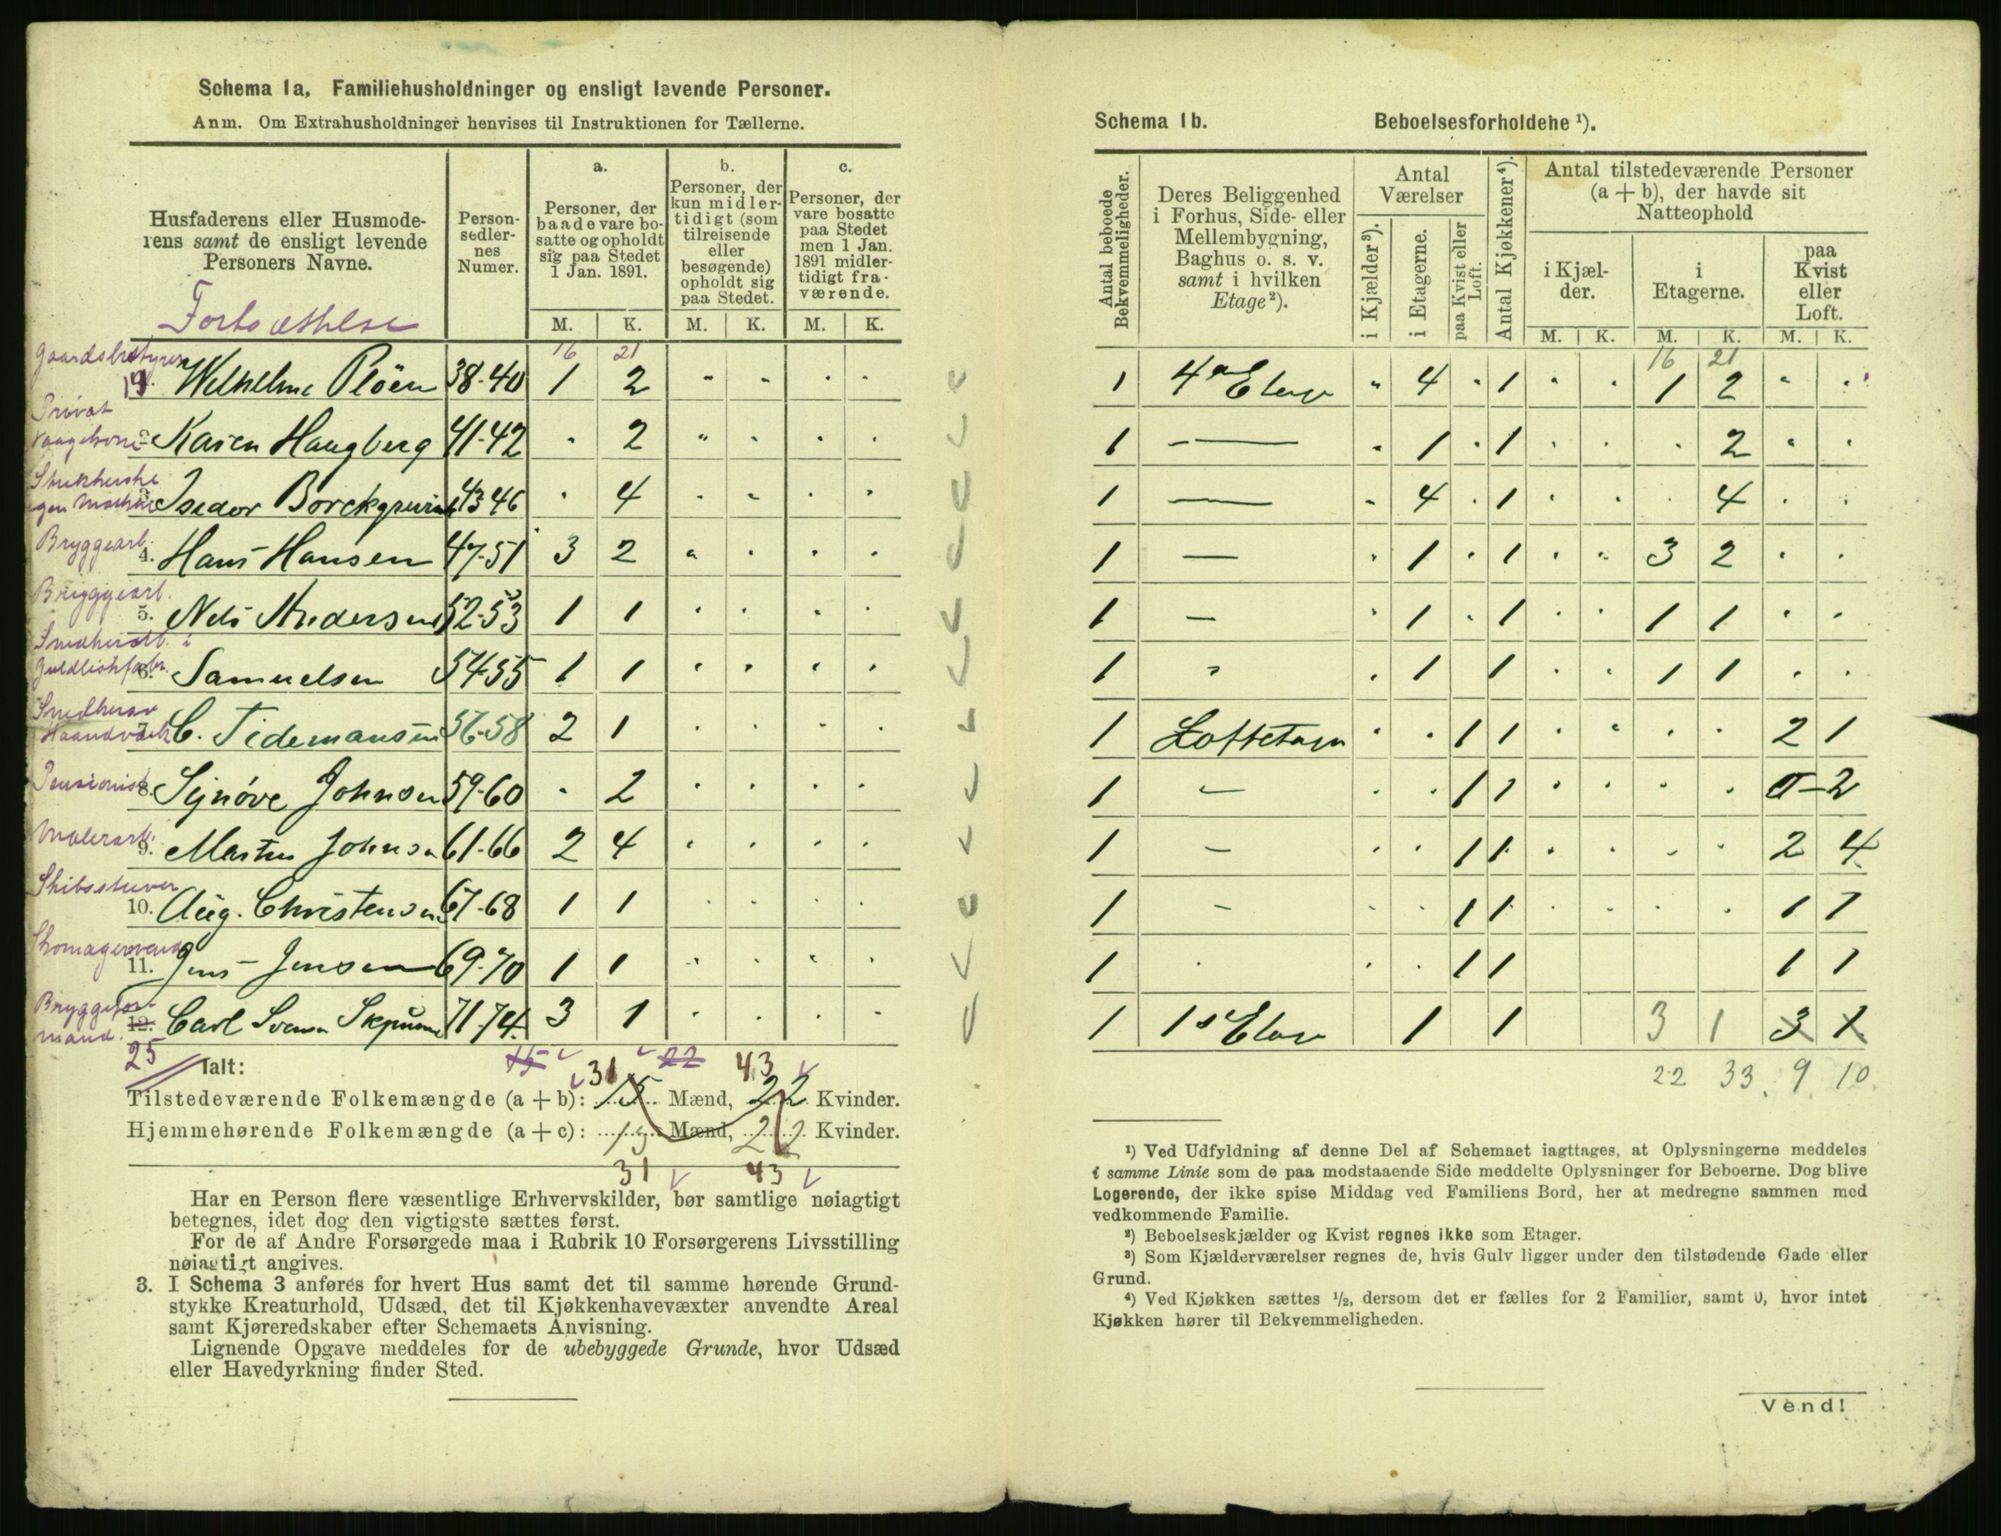 Schema 1a. Familiehusholdninger og ensligt levende Personer.
Anm. Om Extrahusholdninger henvises til Instruktionen for Tællerne.
Husfaderens eller Husmoderens samt de ensligt levende Personers Navne.
Fortsættelse
Personsedlernes Numer.
a.
Personer, der baade vare bosatte og opholdt sig paa Stedet 1 Jan. 1891.
b.
Personer, der kun midlertidigt (som tilreisende eller besøgende) opholdt sig paa Stedet.
c.
Personer, der vare bosatte paa Stedet men 1 Jan. 1891 midlertidigt fraværende.
M. K. M. K. M. K.
16 21
Wilhelmine Pløen 38-40 1 2
Privat
Karen Haugberg 41-42 " 2
Isedor Borckgrevink 43-46 " 4
Bryggearb.
4. Hans Hansen 47-51 3 2
Bryggearb.
5. Nels Andersen 52-53 1 1
6. Samuelsen 54-55 1 1
7. C. Tidemansen 56-58 2 1
Pensionist
8. Synøve Johnsen 59-60 . 2
Malerarb.
9. Martin Johnsen 61-66 2 4
Skibsstuver
10. Aug. Christensen 67-68 1 1
11. Jens Jensen 69-70 1 1
Bryggeformand.
12. Carl Svensen 71-74 3 1
25
Ialt: 15 22
31 43
Tilstedeværende Folkemængde (a + b): 15 Mænd, 22 Kvinder.
Hjemmehørende Folkemængde (a + c): 15 Mænd, 22 Kvinder.
31 43
Har en Person flere væsentlige Erhvervskilder, bør samtlige nøiagtigt
betegnes, idet dog den vigtigste sættes først.
For de af Andre Forsørgede maa i Rubrik 10 Forsørgerens Livsstilling
nøiagtigt angives.
3. I Schema 3 anføres for hvert Hus samt det til samme hørende Grund-
stykke Kreaturhold, Udsæd, det til Kjøkkenhavevæxter anvendte Areal
samt Kjøreredskaber efter Schemaets Anvisning.
Lignende Opgave meddeles for de ubebyggede Grunde, hvor Udsæd
eller Havedyrkning finder Sted.
Schema 1b. Beboelsesforholdene ¹).
Antal beboede Bekvemmeligheder.
Deres Beliggenhed i Forhus, Side- eller Mellembygning, Baghus o. s. v. samt i hvilken Etage ²).
Antal Værelser
i Kjælder ³).
i Etagerne.
paa Kvist eller Loft.
Antal Kjøkkener ⁴).
Antal tilstedeværende Personer (a + b), der havde sit Natteophold
i Kjælder.
i Etagerne.
paa Kvist eller Loft.
M. K. M. K. M. K.
16 21
1 4de Etage " 4 " 1 " " 1 2 " "
1 — " 1 . 1 . . . 2 " .
1 — " 4 . 1 . . . 4 . .
1 — . 1 . 1 . . 3 2 . .
1 — . 1 . 1 . . 1 1 . .
1 " . 1 1 . . 1 1 . .
1 Loftetage . . 1 1 . . . . 2 1
1 — . . 1 1 . . . . 0 - 2
1 — . . 1 1 . . . . 2 4
1 — . . 1 1 . . . . 1 1
1 . . . 1 1 1 1
1 1ste Etage 1 1 3 1 3 1
22 33 9 10
¹) Ved Udfyldning af denne Del af Schemaet iagttages, at Oplysningerne meddeles
i samme Linie som de paa modstaaende Side meddelte Oplysninger for Beboerne. Dog blive
Logerende, der ikke spise Middag ved Familiens Bord, her at medregne sammen med
vedkommende Familie.
²) Beboelseskjælder og Kvist regnes ikke som Etager.
³) Som Kjælderværelser regnes de, hvis Gulv ligger under den tilstødende Gade eller
Grund.
⁴) Ved Kjøkken sættes ½, dersom det er fælles for 2 Familier, samt 0, hvor intet
Kjøkken hører til Bekvemmeligheden.
Vend!